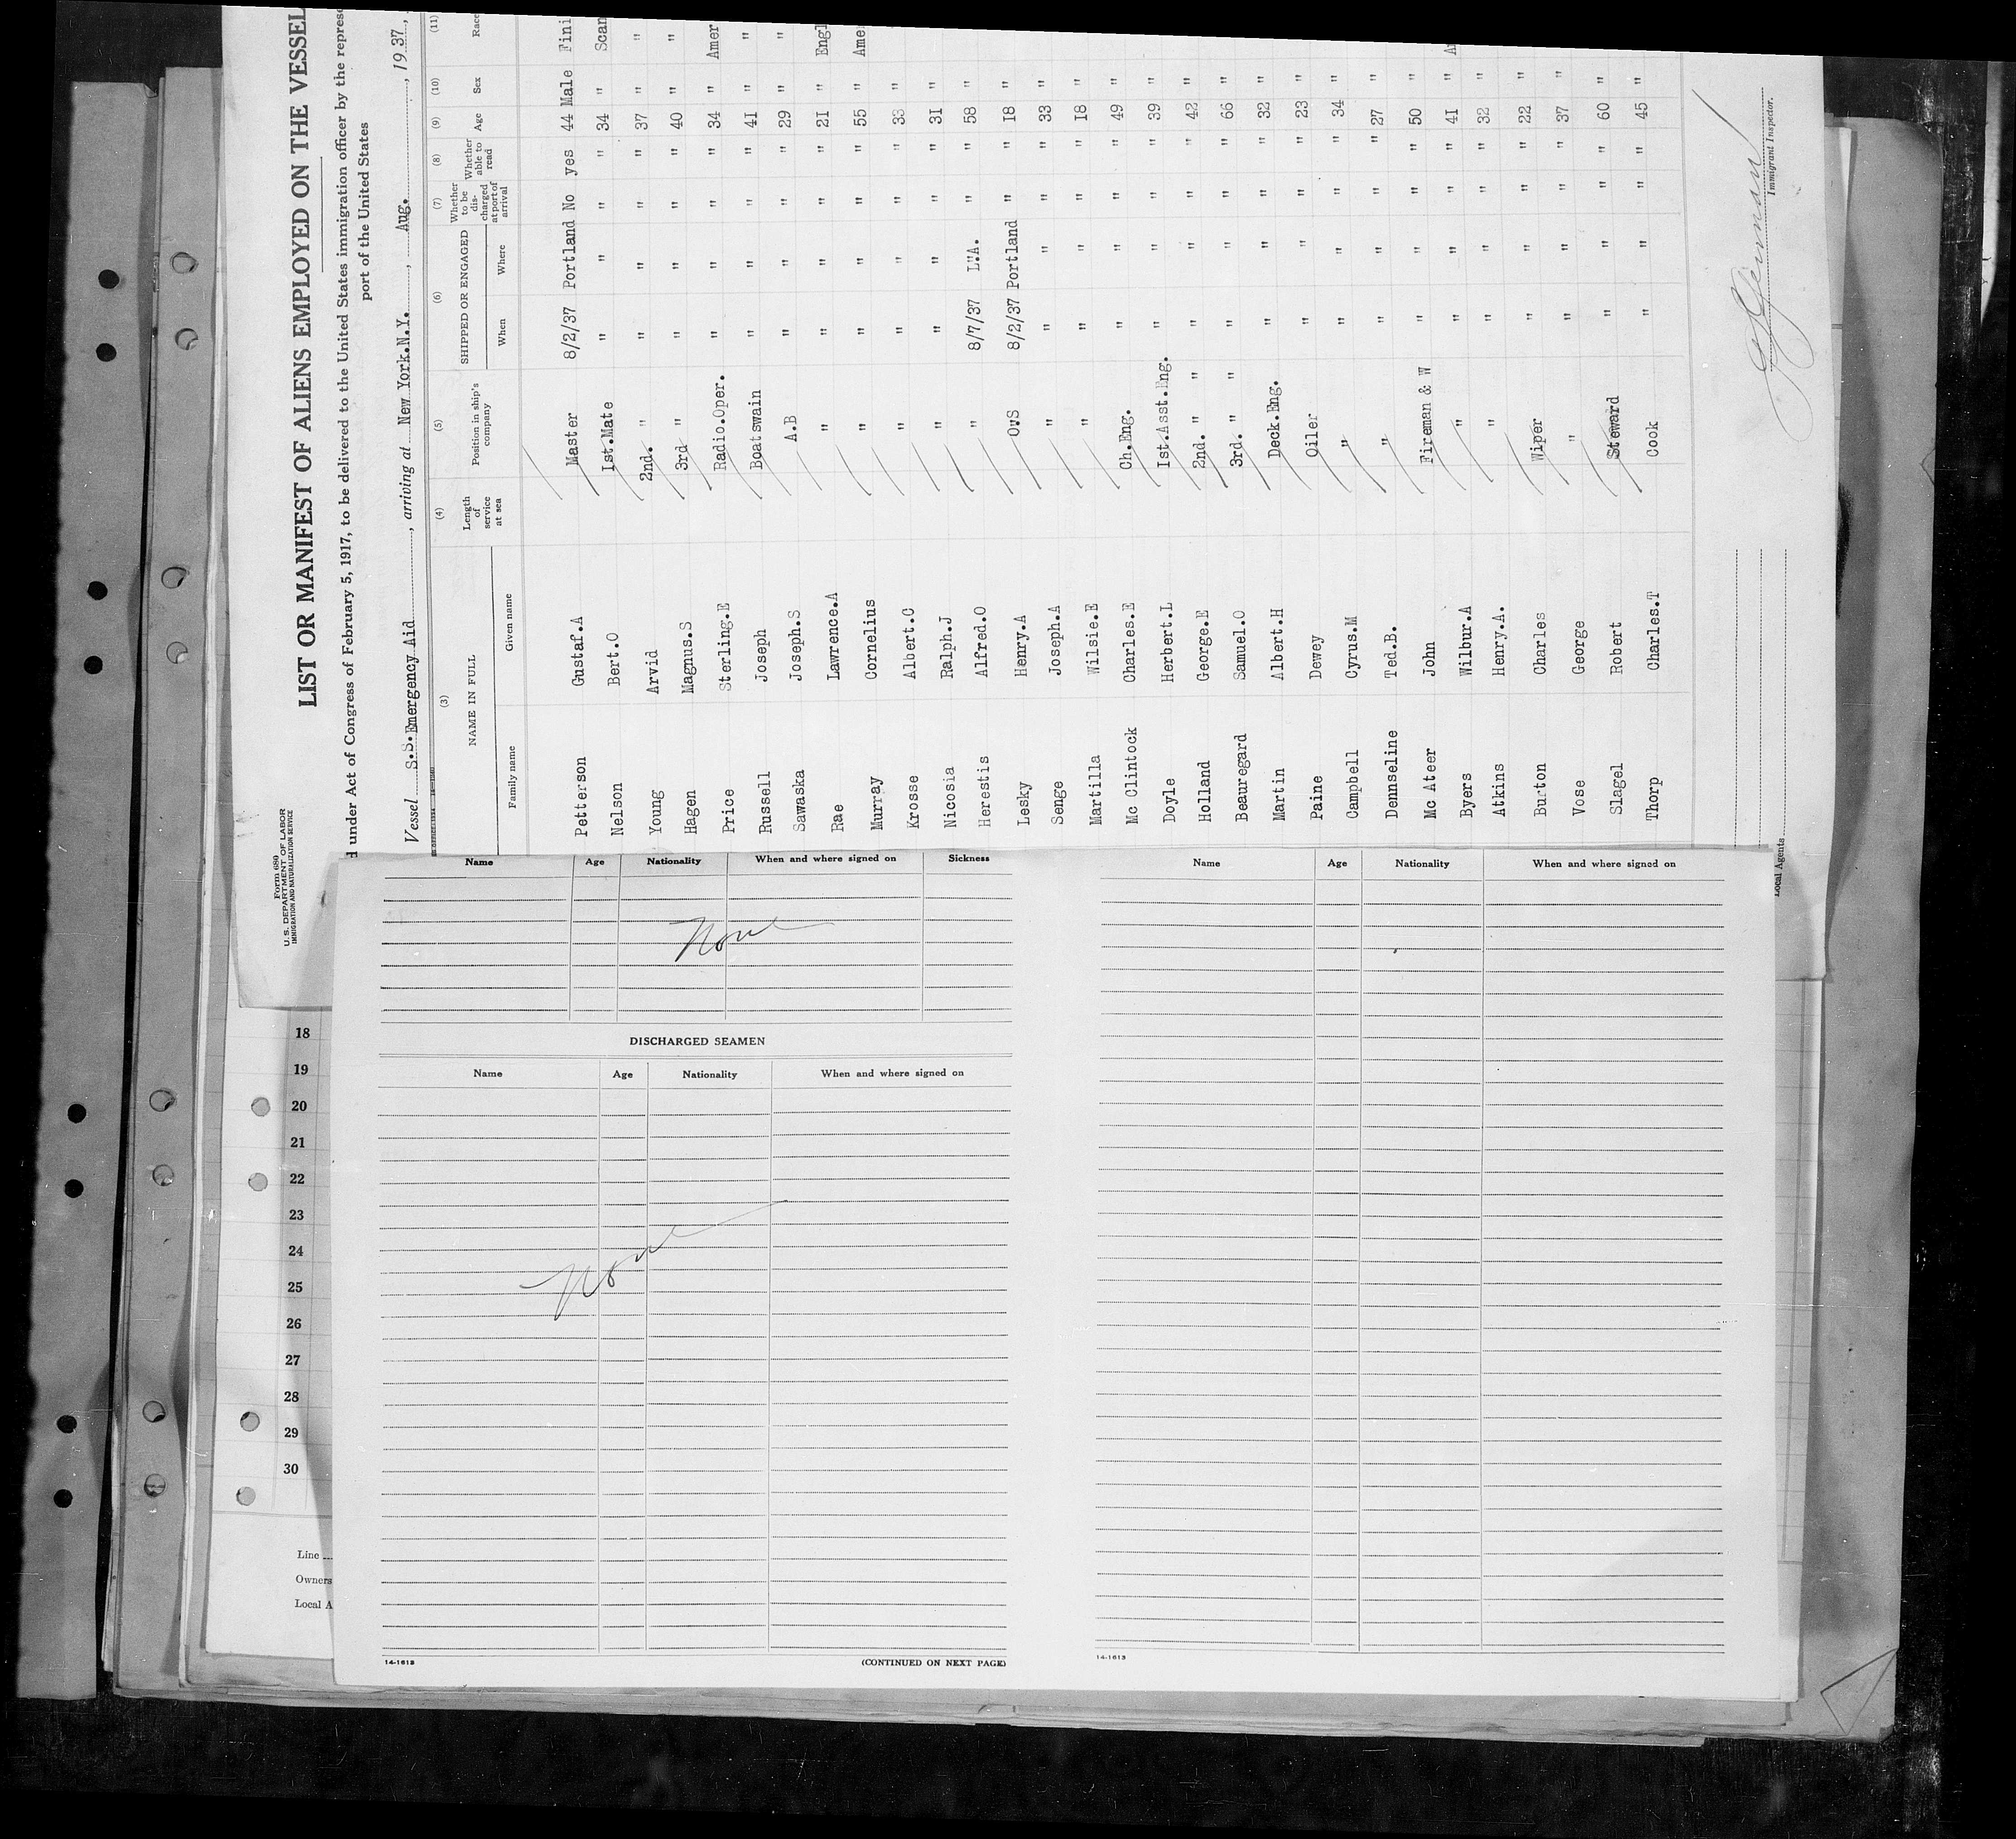 Form 680
U. S. DEPARTMENT OF LABOR
IMMIGRATION AND NATURALIZATION SERVICE
LIST OR MANIFEST OF ALIENS EMPLOYED ON THE VESSEL
under Act of Congress of February 5, 1917, to be delivered to the United States immigration officer by the
port of the United States
Vessel S.S. Emergency Aid, arriving at New York.N.Y., Aug., 1937,
(3) (4) (5) (6) (7) (8) (9) (10) (11)
NAME IN FULL Length of service at sea Position in ship's company SHIPPED OR ENGAGED Whether to be discharged at port of arrival Whether able to read Age Sex Race
Family name Given name When Where
Petterson Gustaf.A Master 8/2/37 Portland No yes 44 Male Fini
Nelson Bert.O 1st.Mate " " " " 34 " Scan
Young Arvid 2nd. " " " " " 37 " "
Hagen Magnus.S 3rd " " " " " 40 " "
Price Sterling.E Radio.Oper. " " " " 34 " Amer
Russell Joseph Boatswain " " " " 41 " "
Sawaska Joseph.S A.B " " " " 29 " "
Rae Lawrence.A " " " " " 21 " Engl
Murray Cornelius " " " " " 55 " Amer
Krosse Albert.C " " " " " 33 "
Nicosia Ralph.J " " " " " 31 "
Herestis Alfred.O " 8/7/37 L.A. " " 58 "
Lesky Henry.A O.S 8/2/37 Portland " " 18 "
Senge Joseph.A " " " " " 33 "
Martilla Wilsie.E " " " " " 18 "
Mc Clintock Charles.E Ch.Eng. " " " " 49 "
Doyle Herbert.L 1st.Asst.Eng. " " " " 39 "
Holland George.E 2nd. " " " " " " 42 "
Beauregard Samuel.O 3rd. " " " " " " 66 "
Martin Albert.H Deck.Eng. " " " " 32 "
Paine Dewey Oiler " " " " 23 "
Campbell Cyrus.M " " " " " 34 "
Dennseline Ted.B. " " " " " 27 "
Mc Ateer John Fireman & W " " " " 50 "
Byers Wilbur.A " " " " " 41 " A
Atkins Henry.A. " " " " " 32 "
Burton Charles Wiper " " " " 22 "
Vose George " " " " " 37 "
Slagel Robert Steward " " " " 60 "
Thorp Charles.T Cook " " " " 45 "
Immigrant Inspector.
Local Agents
Name Age Nationality When and where signed on Sickness
None
DISCHARGED SEAMEN
Name Age Nationality When and where signed on
None
14-1613
(CONTINUED ON NEXT PAGE)
Name Age Nationality When and where signed on
14-1613
18
19
20
21
22
23
24
25
26
27
28
29
30
Line
Owners
Local A